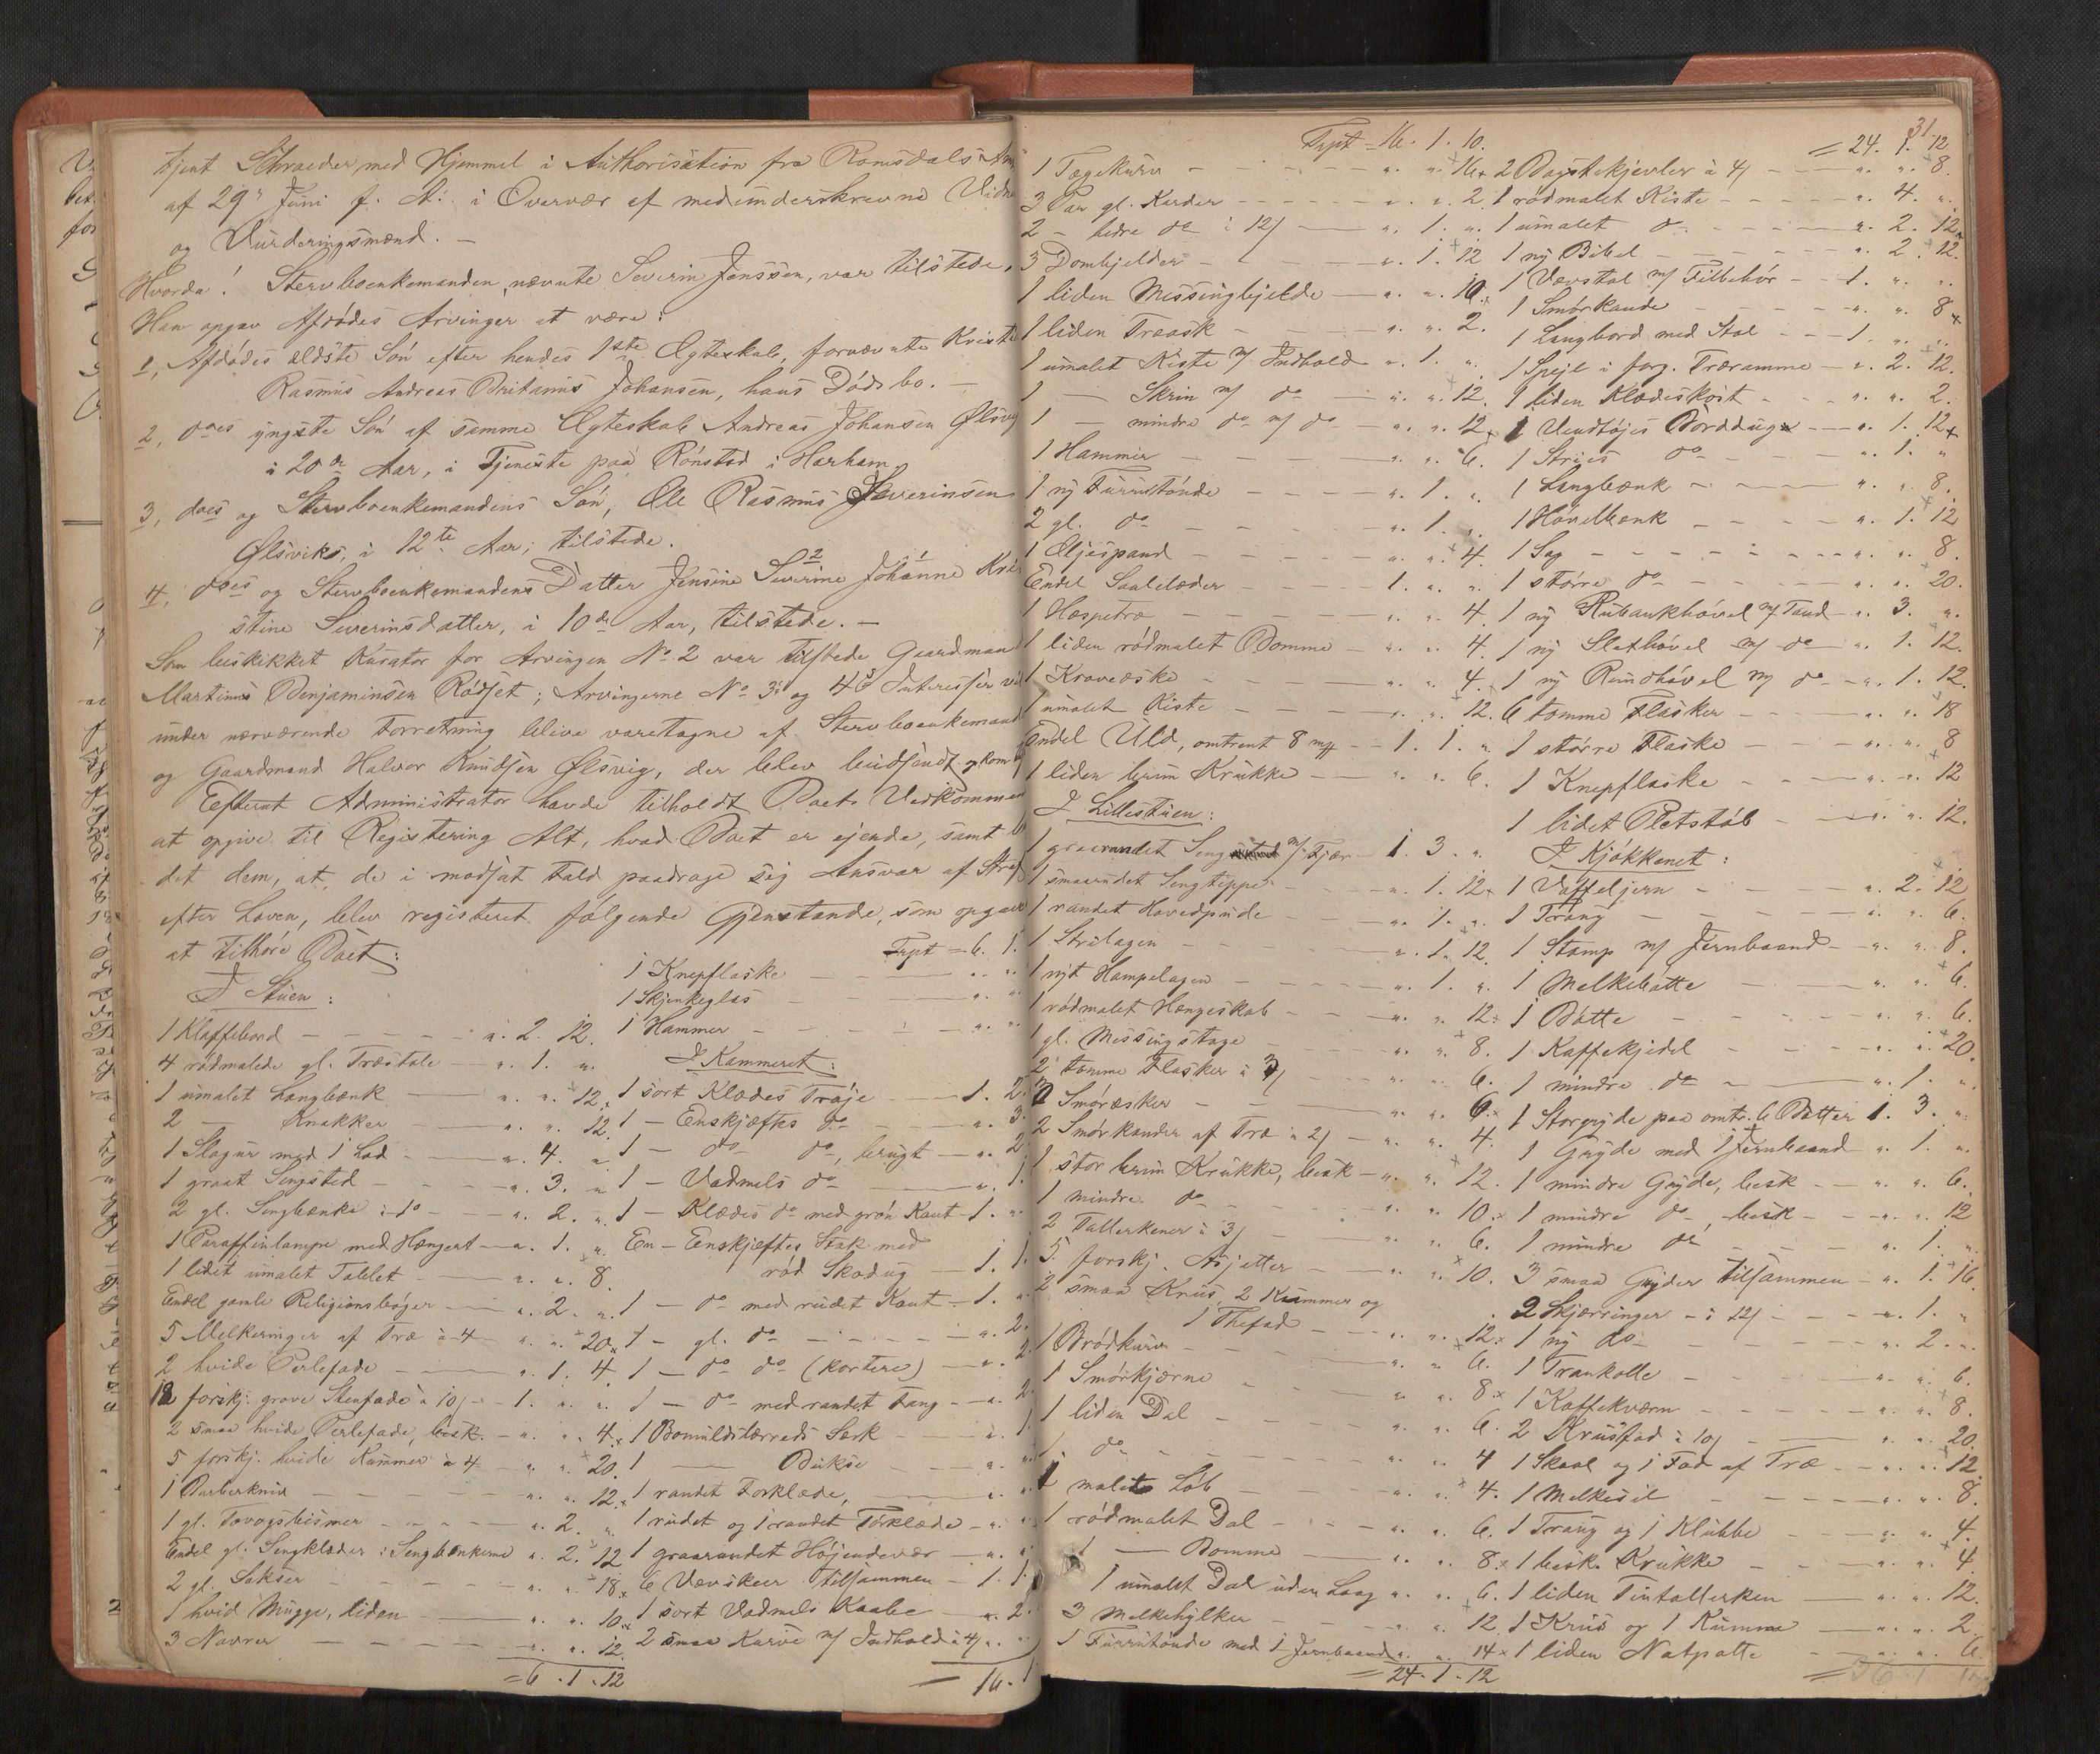 tjent Schraeder med Hjemmel i Authorisation fra Romsdals Am
af 29de Juni f. A. i Overvær af medunderskrevne Vidn
og Vurderingsmænd. —
Hvorda! Stervboenkemanden, nævnte Severin Jenssen, var tilstede.
Han opgav Afdødes Arvinger at være:
1, Afdødes ældste Søn efter hendes 1ste Ægteskab, fornævnte Kriste
Rasmus Andreas Britanus Johansen, hans Dødsbo. —
2, does yngste Søn af samme Ægteskab Andreas Johansen Ølsvig
i 20de Aar, i Tjeneste paa Rønstad i Harham.
3, does og Stervboenkemandens Søn, Ole Rasmus Severinsen
Ølsvik, i 12te Aar, tilstede.
4, does og Stervboenkemandens Datter Jensine Severine Johanne Kri
stine Severinsdatter, i 10de Aar, tilstede. —
Som beskikket Kurator for Arvingen No 2 var tilstede Gaardmand
Martinus Benjaminsen Rødset; Arvingerne No 3 og 4s Interesser vil
under nærværende Forretning blive varetagne af Stervboenkemand
og Gaardmand Halvor Knudsen Ølsvig, der blev budsendt og kom
Efterat Administrator havde tilholdt Boets Vedkommen
at opgive til Registering Alt, hvad Boet er ejende, samt
det dem, at de i modsat Fald paadrage sig Ansvar af Straf
efter Loven, blev registeret følgende Gjenstande, som opgav
at tilhøre Boet:
I Stuen:
1 Klaffebord — " 2. 12.
4 rødmalede gl. Træstole — " 1. "
1 umalet Langbænk — " " 12.
2 — Krakker — " " 12.
1 Slagur med 1 Lod — " 4. "
1 graat Sengsted — " 3. "
2 gl. Sengbænke — " 2. "
1 Paraffinlampe med Hængert — " 1. "
1 lidet umalet Tablet — " " 8.
Endel gamle Religionsbøger — " 2. "
5 Melkeringer af Træ à 4 — " " 20.
2 hvide Perlefade — " 1. 4.
12 forskj. grove Stenfade à 10/ — 1. " "
2 smaa hvide Perlefade, besk. — " " 4.
5 forskj. hvide Kummer à 4 — " " 20.
1 Barberkniv — " " 12.
1 gl. Tovogsbismer — " 2. "
Endel gl. Sengklæder i Sengbænkerne " 2. 12
2 gl. Sakser — " " 18.
1 hvid Mugge, liden — " " 10.
3 Navrer — " " 12.
= 6. 1. 12
Trpt = 6. 1.
1 Knepflaske — " "
1 Skjenkeglas — " "
1 Hammer — " "
I Kammeret:
1 sort Klædes Trøje — 1. 2.
1 — Enskjæftes do — " 3.
1 — do do, brugt — " 2
1 — Vadmels do — " 1.
1 — Klædes do med grøn Kant — 1. "
En — Enskjæftes Stak med
rød Skodug — 1. 1.
1 — do med rudet Kant — 1. "
1 — gl. do — " 2.
1 — do do (kortere) — " 2.
1 — do med randet Fang — " 2.
1 Bomuldslærreds Særk — " 1.
1 — Bukse — " "
1 randet Forklæde, — " "
1 rudet og 1 randet Forklæde — " "
1 graarandet Højendevær — " "
6 Vævskeer tilsammen — 1. 1.
1 sort Vadmels Kaabe — " 2.
2 smaa Kurve m/ Indhold à 4/ " "
= 16. 1
31.
Trpt = 16. 1. 10.
1 Tægekurv — " " 16.
3 Par gl. Karder — " " 2.
2 — bedre do à 12/ — " 1. "
3 Dombjelder — " 1. 12
1 liden Messingbjelde — " " 10.
1 liden Træask — " " 2.
1 umalet Kiste m/ Indhold " 1. "
1 — Skrin m/ do — " " 12.
1 — mindre do m/ do — " " 12.
1 Hammer — " " 6.
1 ny Furrutønde — " 1. "
2 gl. do — " 1. "
1 Oljespand — " " 4.
Endel Saalelæder — 1. " "
1 Hespetræ — " " 4.
1 liden rødmalet Bomme — " " 4.
1 Kraveæske — " " 4.
1 umalet Kiste — " " 12.
Endel Uld, omtrent 8 — 1. 1. "
1 liden brun Krukke — " " 6.
I Lillestuen:
1 graarandet Seng m/ Fjær — 1. 3. "
1 smaarudet Sengteppe — " 1. 12
1 randet Hovedpude — " 1. "
1 Strilagen — " 1. 12.
1 nyt Hampelagen — " 1. "
1 rødmalet Hængeskab — " " 12.
1 gl. Messingstage — " " 8.
2 tomme Flasker à 3/ — " " 6.
2 Smøræsker — " " 6.
2 Smørkander af Træ à 2/ — " " 4.
1 stor brun Krukke, besk — " " 12.
1 mindre do — " " 10.
2 Tallerkener à 3/ — " " 6.
5 forskj. Asjetter — " " 10.
2 smaa Krus, 2 Kummer og
1 Thefad — " " 12.
1 Brødkurv — " " 6.
1 Smørkjærne — " " 8.
1 liden Dal — " " 6.
1 do — " " 4
1 malet Løb — " " 4.
1 rødmalet Dal — " " 6.
1 — Bomme — " " 8.
1 umalet Dal uden Laag " " 6.
3 Melkehylker — " " 12
1 Furrutønde med 1 Jernbaand " " 14
= 24. 1. 12
= 24. 1. 12
2 Bagstekjevler à 4/ — " " 8.
1 rødmalet Kiste — " 4. "
1 umalet do — " 2. 12.
1 ny Bibel — " 2. 12.
1 Vævstol m/ Tilbehør — 1. " "
1 Smørkande — " " 8
1 Langbord med Stol — 1. " "
1 Spejl i forg. Træramme — " 2. 12.
1 liden Klædeskost — " " 2.
1 Vendtøjes Borddug — " 1. 12
1 Stries do — " 1. "
1 Langbænk — " " 8.
1 Høvelbænk — " 1. 12
1 Sag — " " 8.
1 større do — " " 20.
1 ny Rubankhøvel m/ Tand " 3. "
1 ny Slethøvel m/ do " 1. 12.
1 ny Rundhøvel m/ do — " 1. 12.
6 tomme Flasker — " " 18
1 større Flaske — " " 8
1 Knepflaske — " " 12
1 lidet Pletstøb — " " 12.
I Kjøkkenet:
1 Vaffeljern — " 2. 12
1 Traug — " " 6.
1 Stamp m/ Jernbaand — " " 8.
1 Melkebøtte — " " 6.
1 Bøtte — " " 6.
1 Kaffekjedel — " " 20.
1 mindre do — " 1. "
1 Storgryde paa omtr. 6 Bøtter 1. 3. "
1 Gryde med 1 Jernbaand " 1. "
1 mindre Gryde, besk — " " 6.
1 mindre do, besk — " " 12
1 mindre do — " 1. "
3 smaa Gryder tilsammen " 1. 16.
2 Skjærringer à 12/ — " 1. "
1 ny do — " 2. "
1 Trankolle — " " 6.
1 Kaffekværn — " " 8.
2 Krusfad à 10/ — " " 20.
1 Skaal og 1 Fad af Træ — " " 12.
1 Melkesil — " " 8.
1 Traug og 1 Klubbe — " " 4.
1 besk. Krukke — " " 4
1 liden Tintallerken — " " 12.
1 Krus og 1 Kumme — " " 2.
1 liden Natpotte — " " 6.